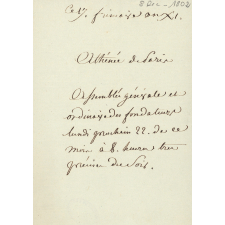 Ce 17. frimaire an XI.
8 Dec - 1802
Athénée de Paris
Assemblée générale et
ordinaire des fondateurs
lundi prochain 22. de ce
mois à 8. heures très
précises du Soir.